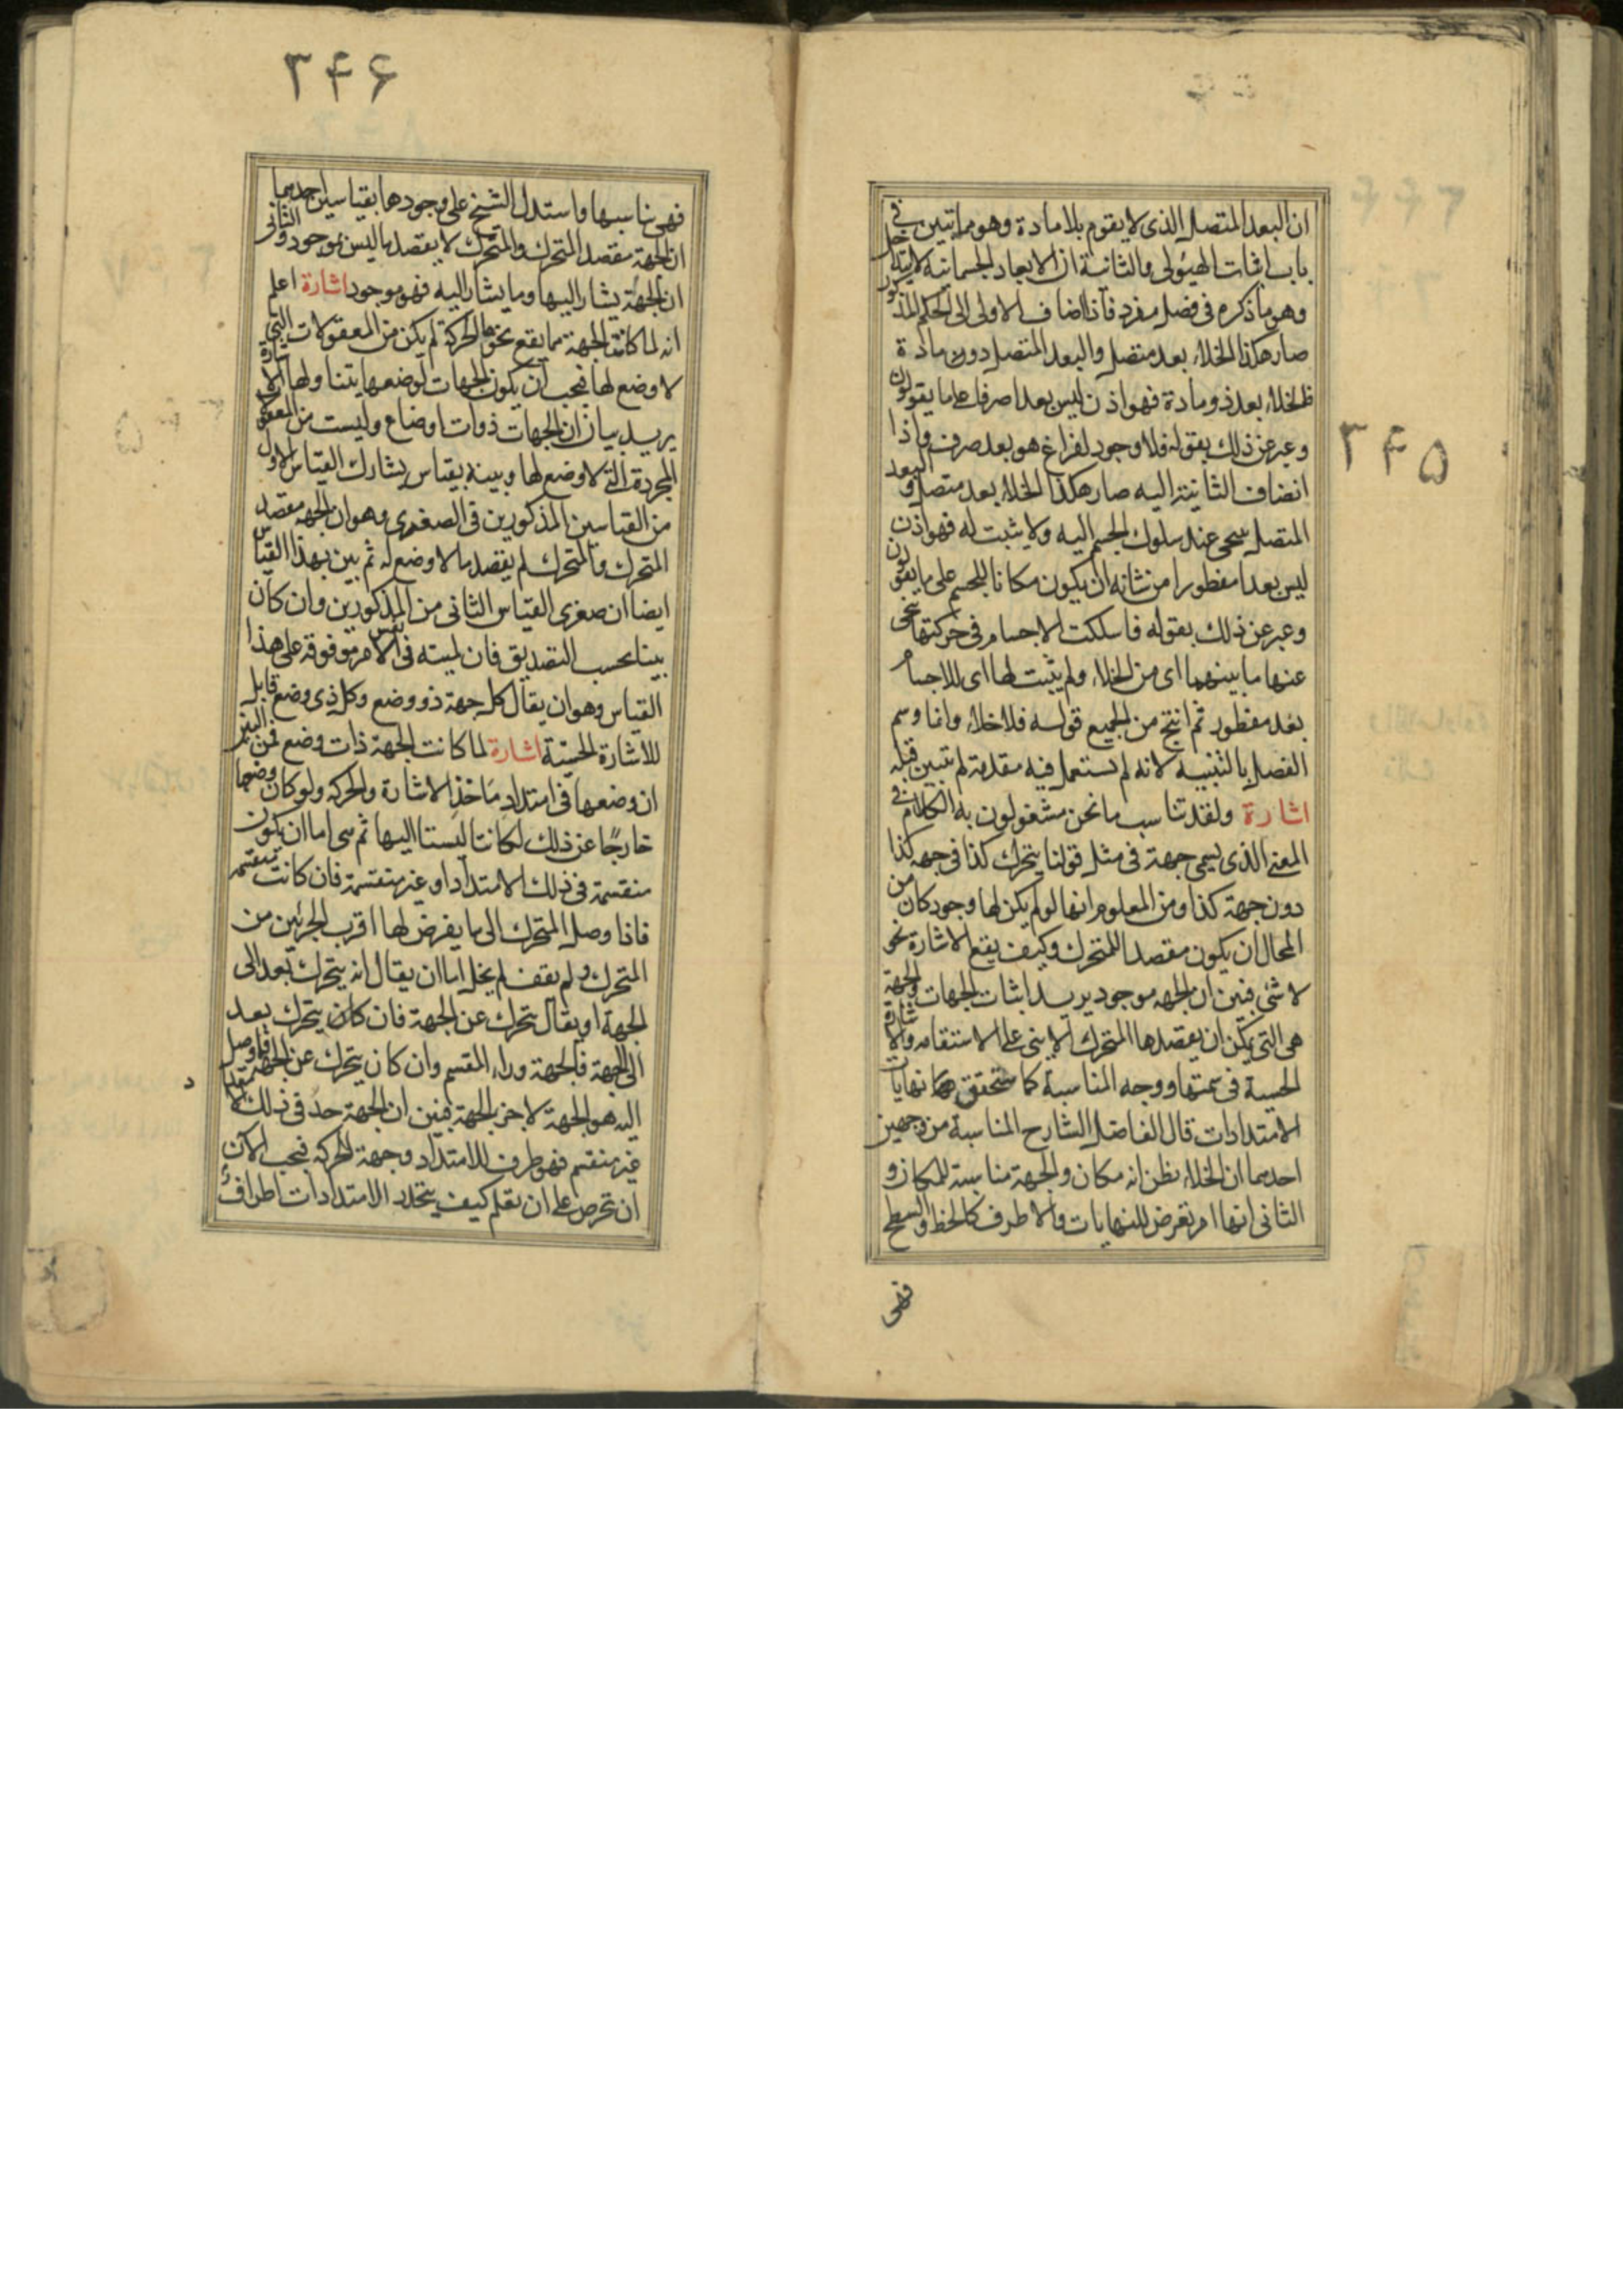 ۳۴۵
ان البعد المتصل الذی لا یقوم بلا مادة وهو مما تبین فی
باب اثبات الهیولی والثانیة ان الابعاد الجسمانیه لا یتداخل
وهو ما ذکره فی فصل مفرد فاذا اضاف الاولی الی الحکم المذکور
صار هکذا الخلاء بعد متصل والبعد المتصل دون مادة
فالخلاء بعد ذو مادة فهو اذن لیس بعدا صرفا علی ما یقولون
وعبر عن ذلک بقوله فلا وجود لفراغ هو بعد صرف واذا
انضاف الثانیة الیه صار هکذا الخلاء بعد متصل والبعد
المتصل یتنحی عند سلوک الجسم الیه ولا یثبت له فهو اذن
لیس بعدا مفطورا من شانه ان یکون مکانا للجسم علی ما یقولون
وعبر عن ذلک بقوله فاسلکت الاجسام فی حرکتها تنحی
عنها ما بینهما ای من الخلاء ولم یثبت لها ای للاجسام
بعد مفطور ثم انتج من الجمیع قوله فلا خلاء وانما وسم
الفصل بالتنبیه لانه لم یستعمل فیه مقدمة لم تتبین قبله
اشارة ولقد تناسب ما نحن مشغولون به الکلام فی
المعنی الذی یسمی جهة فی مثل قولنا یتحرک کذا فی جهه کذا
دون جهة کذا ومن المعلوم انها لو لم یکن لها وجود کان من
المحال ان یکون مقصدا للمتحرک وکیف یقع الاشارة نحو
لا شئ فبین ان الجهه موجود یرید اثبات الجهات والجهة
هی التی یمکن ان یقصدها المتحرک الاینی علی الاستقامه والاشارة
الحسیة فی سمتها ووجه المناسبة کما ستحقق نهایات
الامتدادات قال الفاضل الشارح المناسبة من وجهین
احدیهما ان الخلاء یظن انه مکان والجهة مناسبة للمکان و
الثانی انها امر تعرض للنهایات والاطرف کالخط والسطح
فهی
۳۴۶
فهی تناسبها واستدل الشیخ علی وجودها بقیاسین احدیهما
ان الجهة مقصد المتحرک والمتحرک لا یقصد ما لیس بموجود والثانی
ان الجهة یشار الیها وما یشار الیه فهو موجود اشارة اعلم
انه لما کانت الجهة مما یقع نحوها الحرکة لم یکن من المعقولات التی
لا وضع لها فیجب ان یکون الجهات لوضعها یتناولها الاشارة
یرید بیان ان الجهات ذوات اوضاع ولیست من المعقولات
المجردة التی لا وضع لها وبینه بقیاس یشارک القیاس الاول
من القیاسین المذکورین فی الصغری وهو ان الجهه مقصد
المتحرک والمتحرک لم یقصد ما لا وضع له ثم بین بهذا القیاس
ایضا ان صغری القیاس الثانی من المذکورین وان کان
بینا بحسب التصدیق فان لمیته فی نفس الامر موقوفة علی هذا
القیاس وهو ان یقال کل جهة ذو وضع وکل ذی وضع قابل
للاشارة الحسیة اشارة لما کانت الجهة ذات وضع فمن البین
ان وضعها فی امتداد ماخذ الاشارة والحرکه ولو کان وضعها
خارجا عن ذلک لکانتا لیستا الیها ثم هی اما ان یکون
منقسمة فی ذلک الامتداد او غیر منقسمة فان کانت منقسمه
فاذا وصل المتحرک الی ما یفرض لها اقرب الجزئین من
المتحرک ولم یقف لم یخل اما ان یقال انه یتحرک بعد الی
الجهة او یقال یتحرک عن الجهة فان کان یتحرک بعد
الی الجهة فالجهة وراء المقسم وان کان یتحرک عن الجهة فما وصل
الیه هو الجهة لا جزء الجهة فبین ان الجهة حد فی ذلک
غیر منقسم فهو طرف للامتداد وجهة للحرکه فیجب الآن
ان تحرص علی ان تعلم کیف یتحدد الامتدادات اطراف